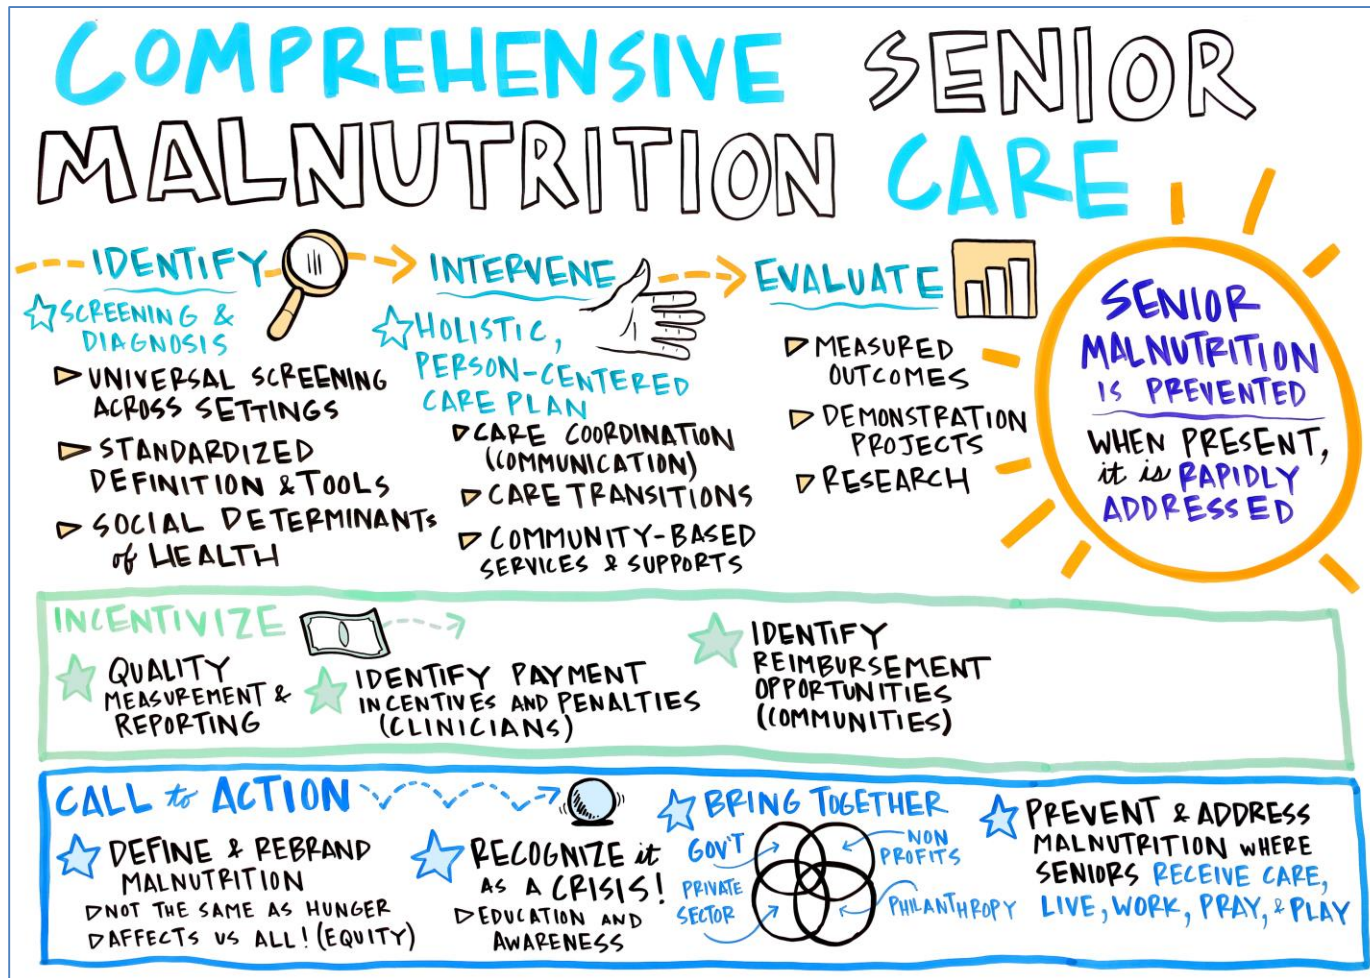 COMPREHENSIVE SENIOR
MALNUTRITION CARE
IDENTIFY
SCREENING &
DIAGNOSIS
UNIVERSAL SCREENING
ACROSS SETTINGS
STANDARDIZED
DEFINITION & TOOLS
SOCIAL DETERMINANTS
of HEALTH
INTERVENE
HOLISTIC,
PERSON-CENTERED
CARE PLAN
CARE COORDINATION
(COMMUNICATION)
CARE TRANSITIONS
COMMUNITY-BASED
SERVICES & SUPPORTS
EVALUATE
MEASURED
OUTCOMES
DEMONSTRATION
PROJECTS
RESEARCH
SENIOR
MALNUTRITION
IS PREVENTED
WHEN PRESENT,
it is RAPIDLY
ADDRESSED
INCENTIVIZE
QUALITY
MEASUREMENT &
REPORTING
IDENTIFY PAYMENT
INCENTIVES AND PENALTIES
(CLINICIANS)
IDENTIFY
REIMBURSEMENT
OPPORTUNITIES
(COMMUNITIES)
CALL to ACTION
DEFINE & REBRAND
MALNUTRITION
NOT THE SAME AS HUNGER
AFFECTS US ALL! (EQUITY)
RECOGNIZE it
AS A CRISIS!
EDUCATION AND
AWARENESS
BRING TOGETHER
GOV'T
NON
PROFITS
PRIVATE
SECTOR
PHILANTHROPY
PREVENT & ADDRESS
MALNUTRITION WHERE
SENIORS RECEIVE CARE,
LIVE, WORK, PRAY, & PLAY